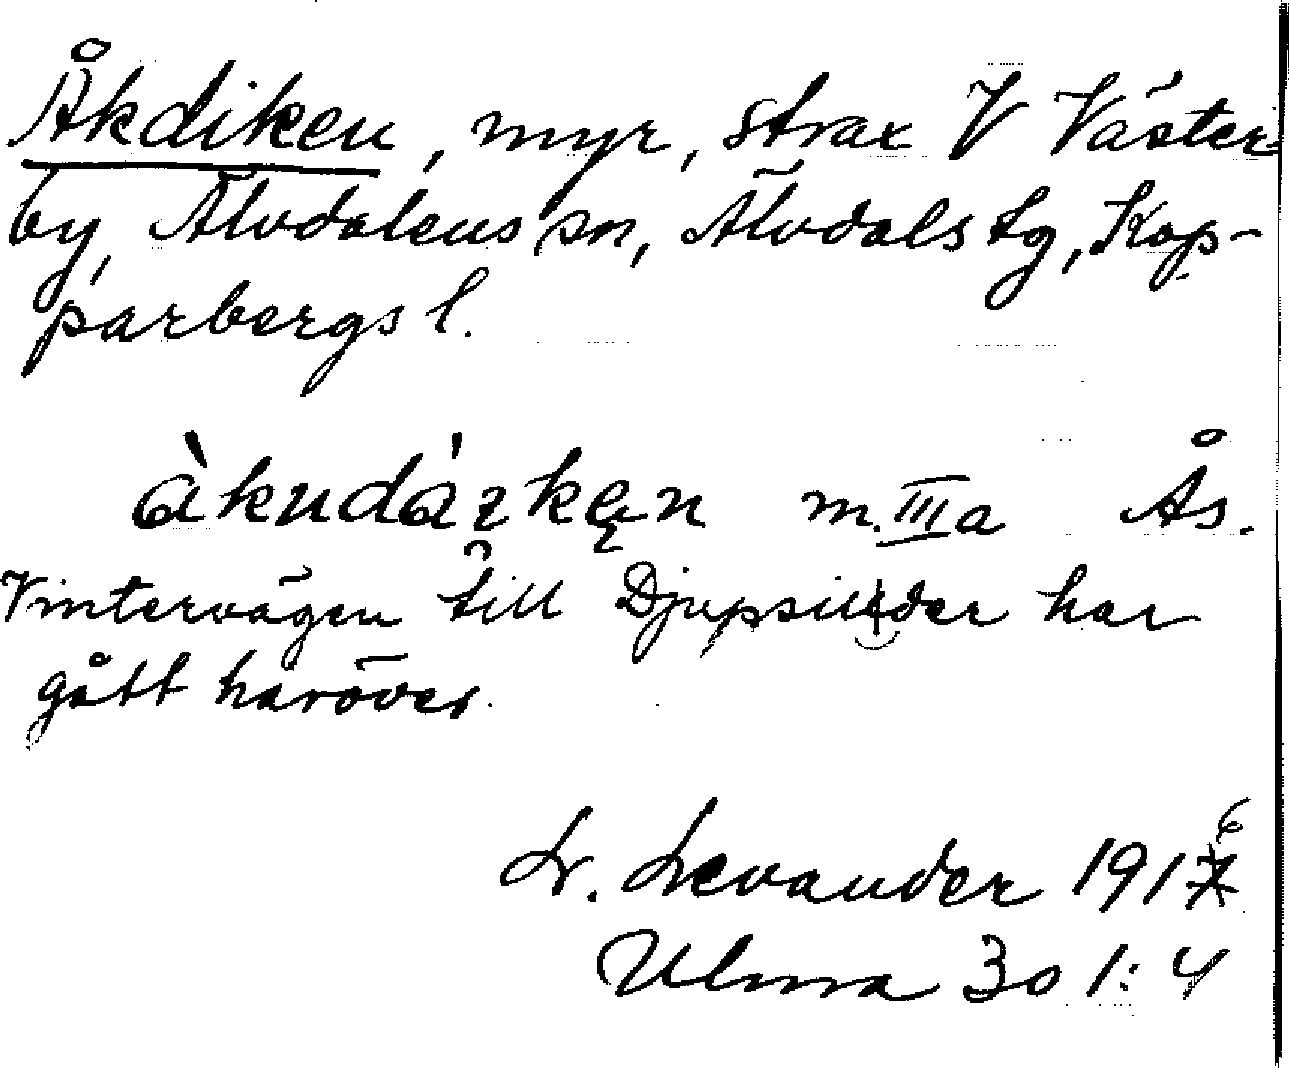 Åkdiken, myr, strax V Väster-
by, Älvdalens sn, Älvdals tg, Kop-
parbergs l.
àkudàɪkęn m. IIIa Ås.
Vintervägen till Djupsilder har
gått häröver.
L. Levander 1916
Ulma 301:4